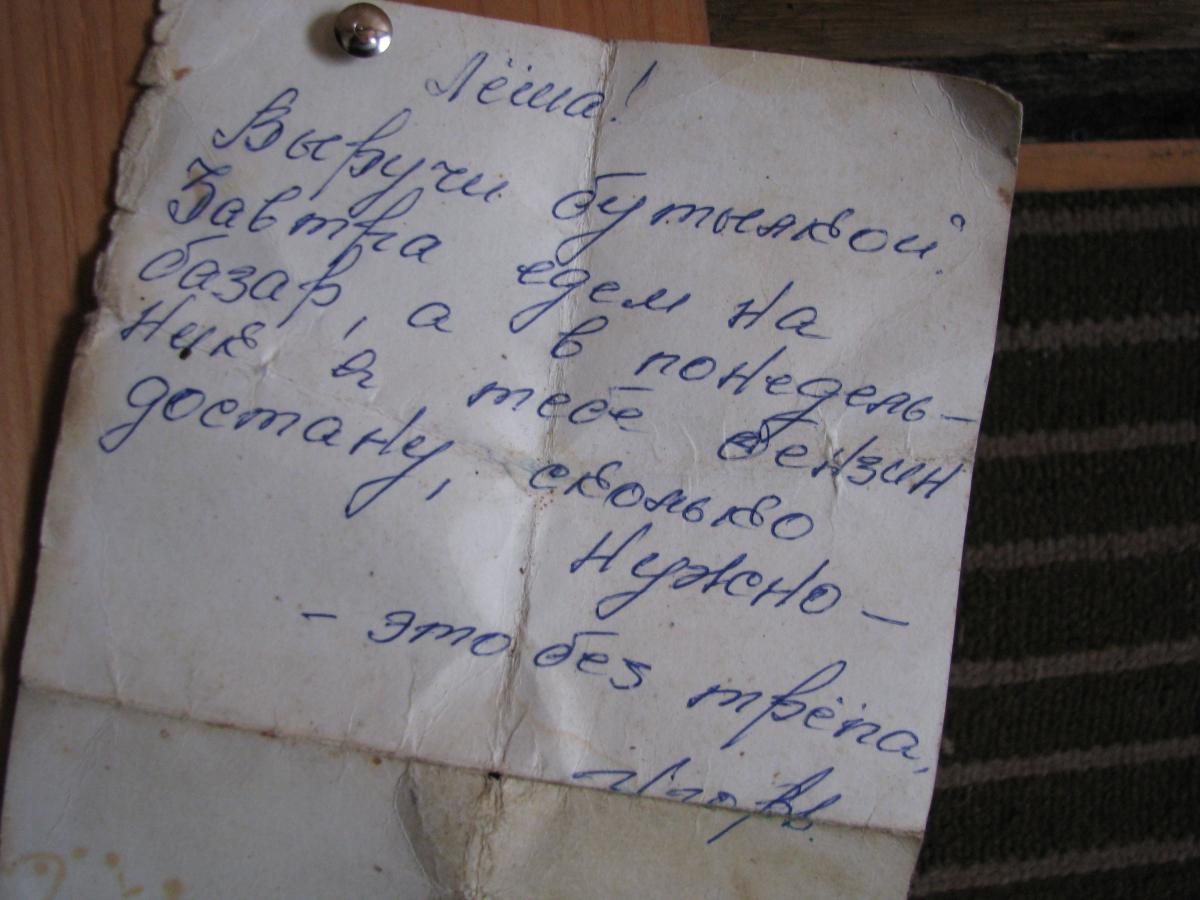 Лёша!
Выручи бутылкой.
Завтра едем на
базар, а в понедель-
ник я тебе бензин
достану, сколько
нужно –
– это без трёпа,